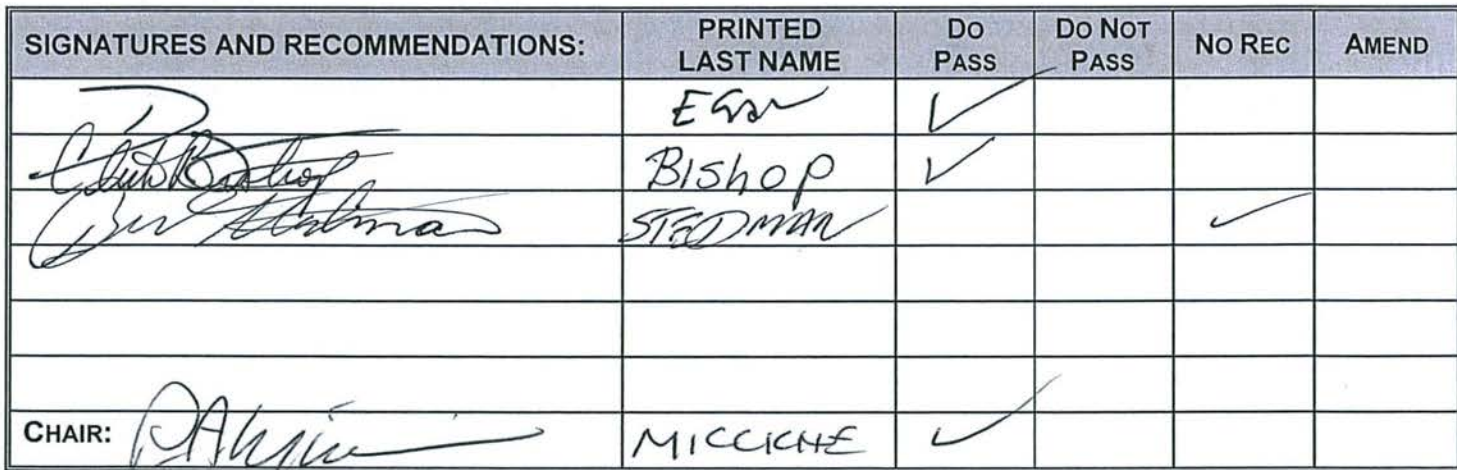 SIGNATURES AND RECOMMENDATIONS: PRINTED LAST NAME DO PASS DO NOT PASS NO REC AMEND
EGAN ✓
Click Bishop BISHOP ✓
Bert Stedman STEDMAN ✓
CHAIR: MICCICHE ✓